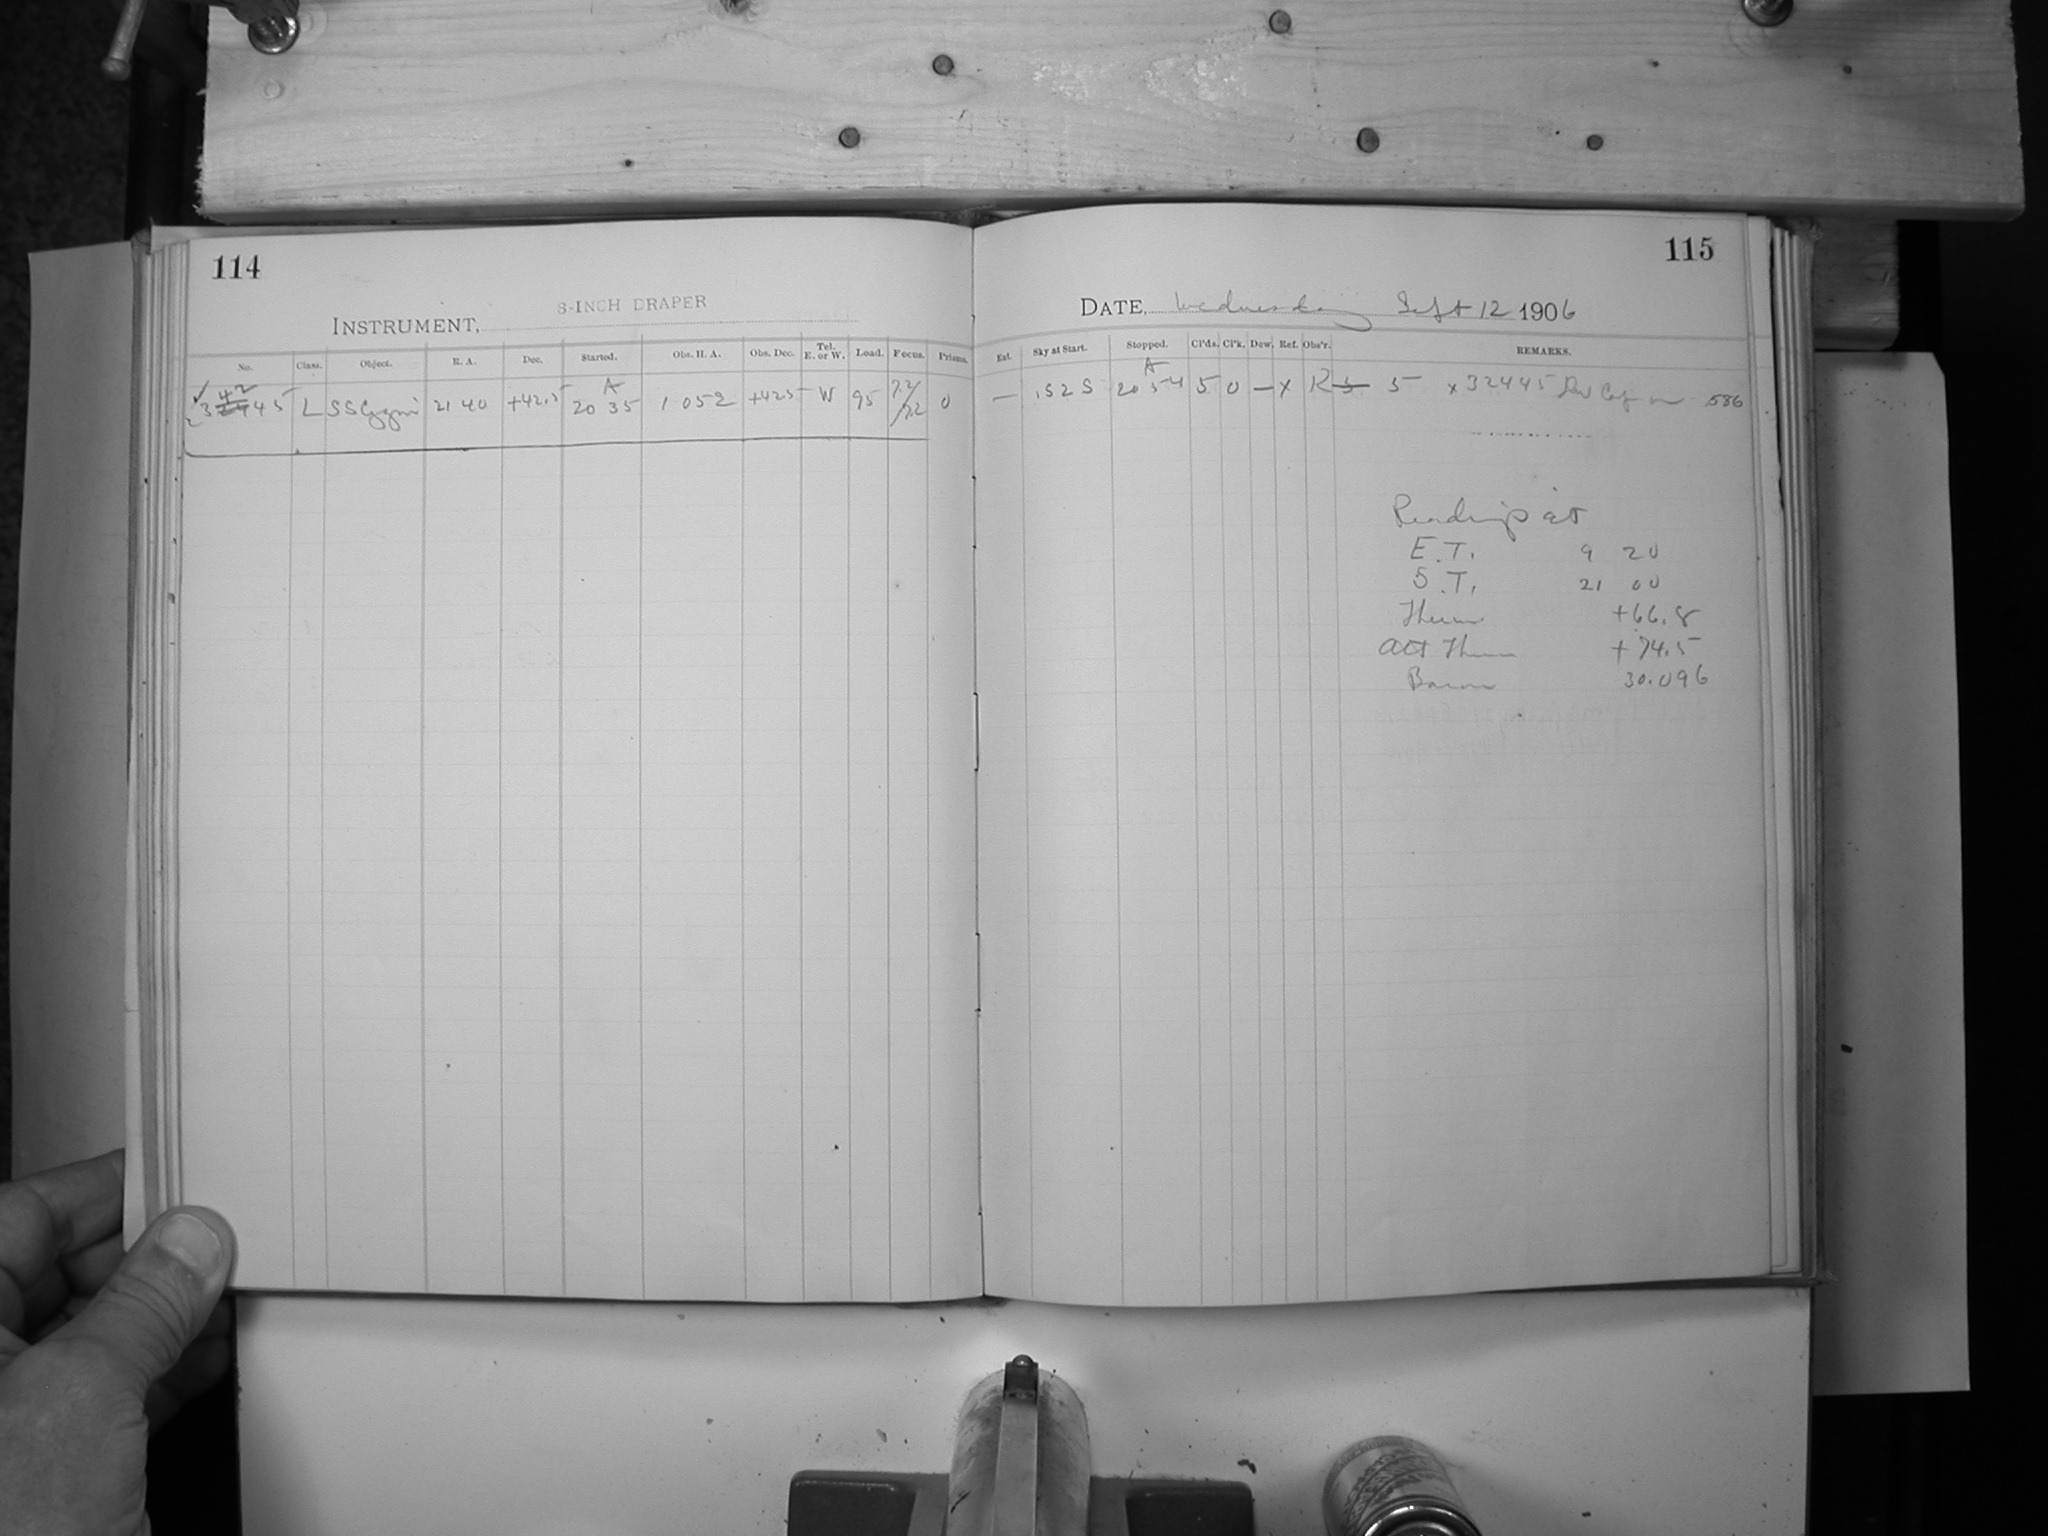 114
8-INCH DRAPER
INSTRUMENT,
No. Class. Object. R. A. Dec. Started. Obs. H. A. Obs. Dec. Tel. E. or W. Load. Focus. Prisms.
L SS Cygni 21 40 +42.5 A 20 35 1 052 +42.5 W 95 7.2/7.2 0
115
DATE, Wednesday Sept 12 1906
Ext. Sky at Start. Stopped. Cl'ds. Cl'k. Dew. Ref. Obs'r. REMARKS.
— 1S2S A 20 54 5 0 — X R 5 x 32445 586
Readings at
E.T. 9 20
S.T. 21 00
Therm +66.8
Att Therm +74.5
Barom 30.096